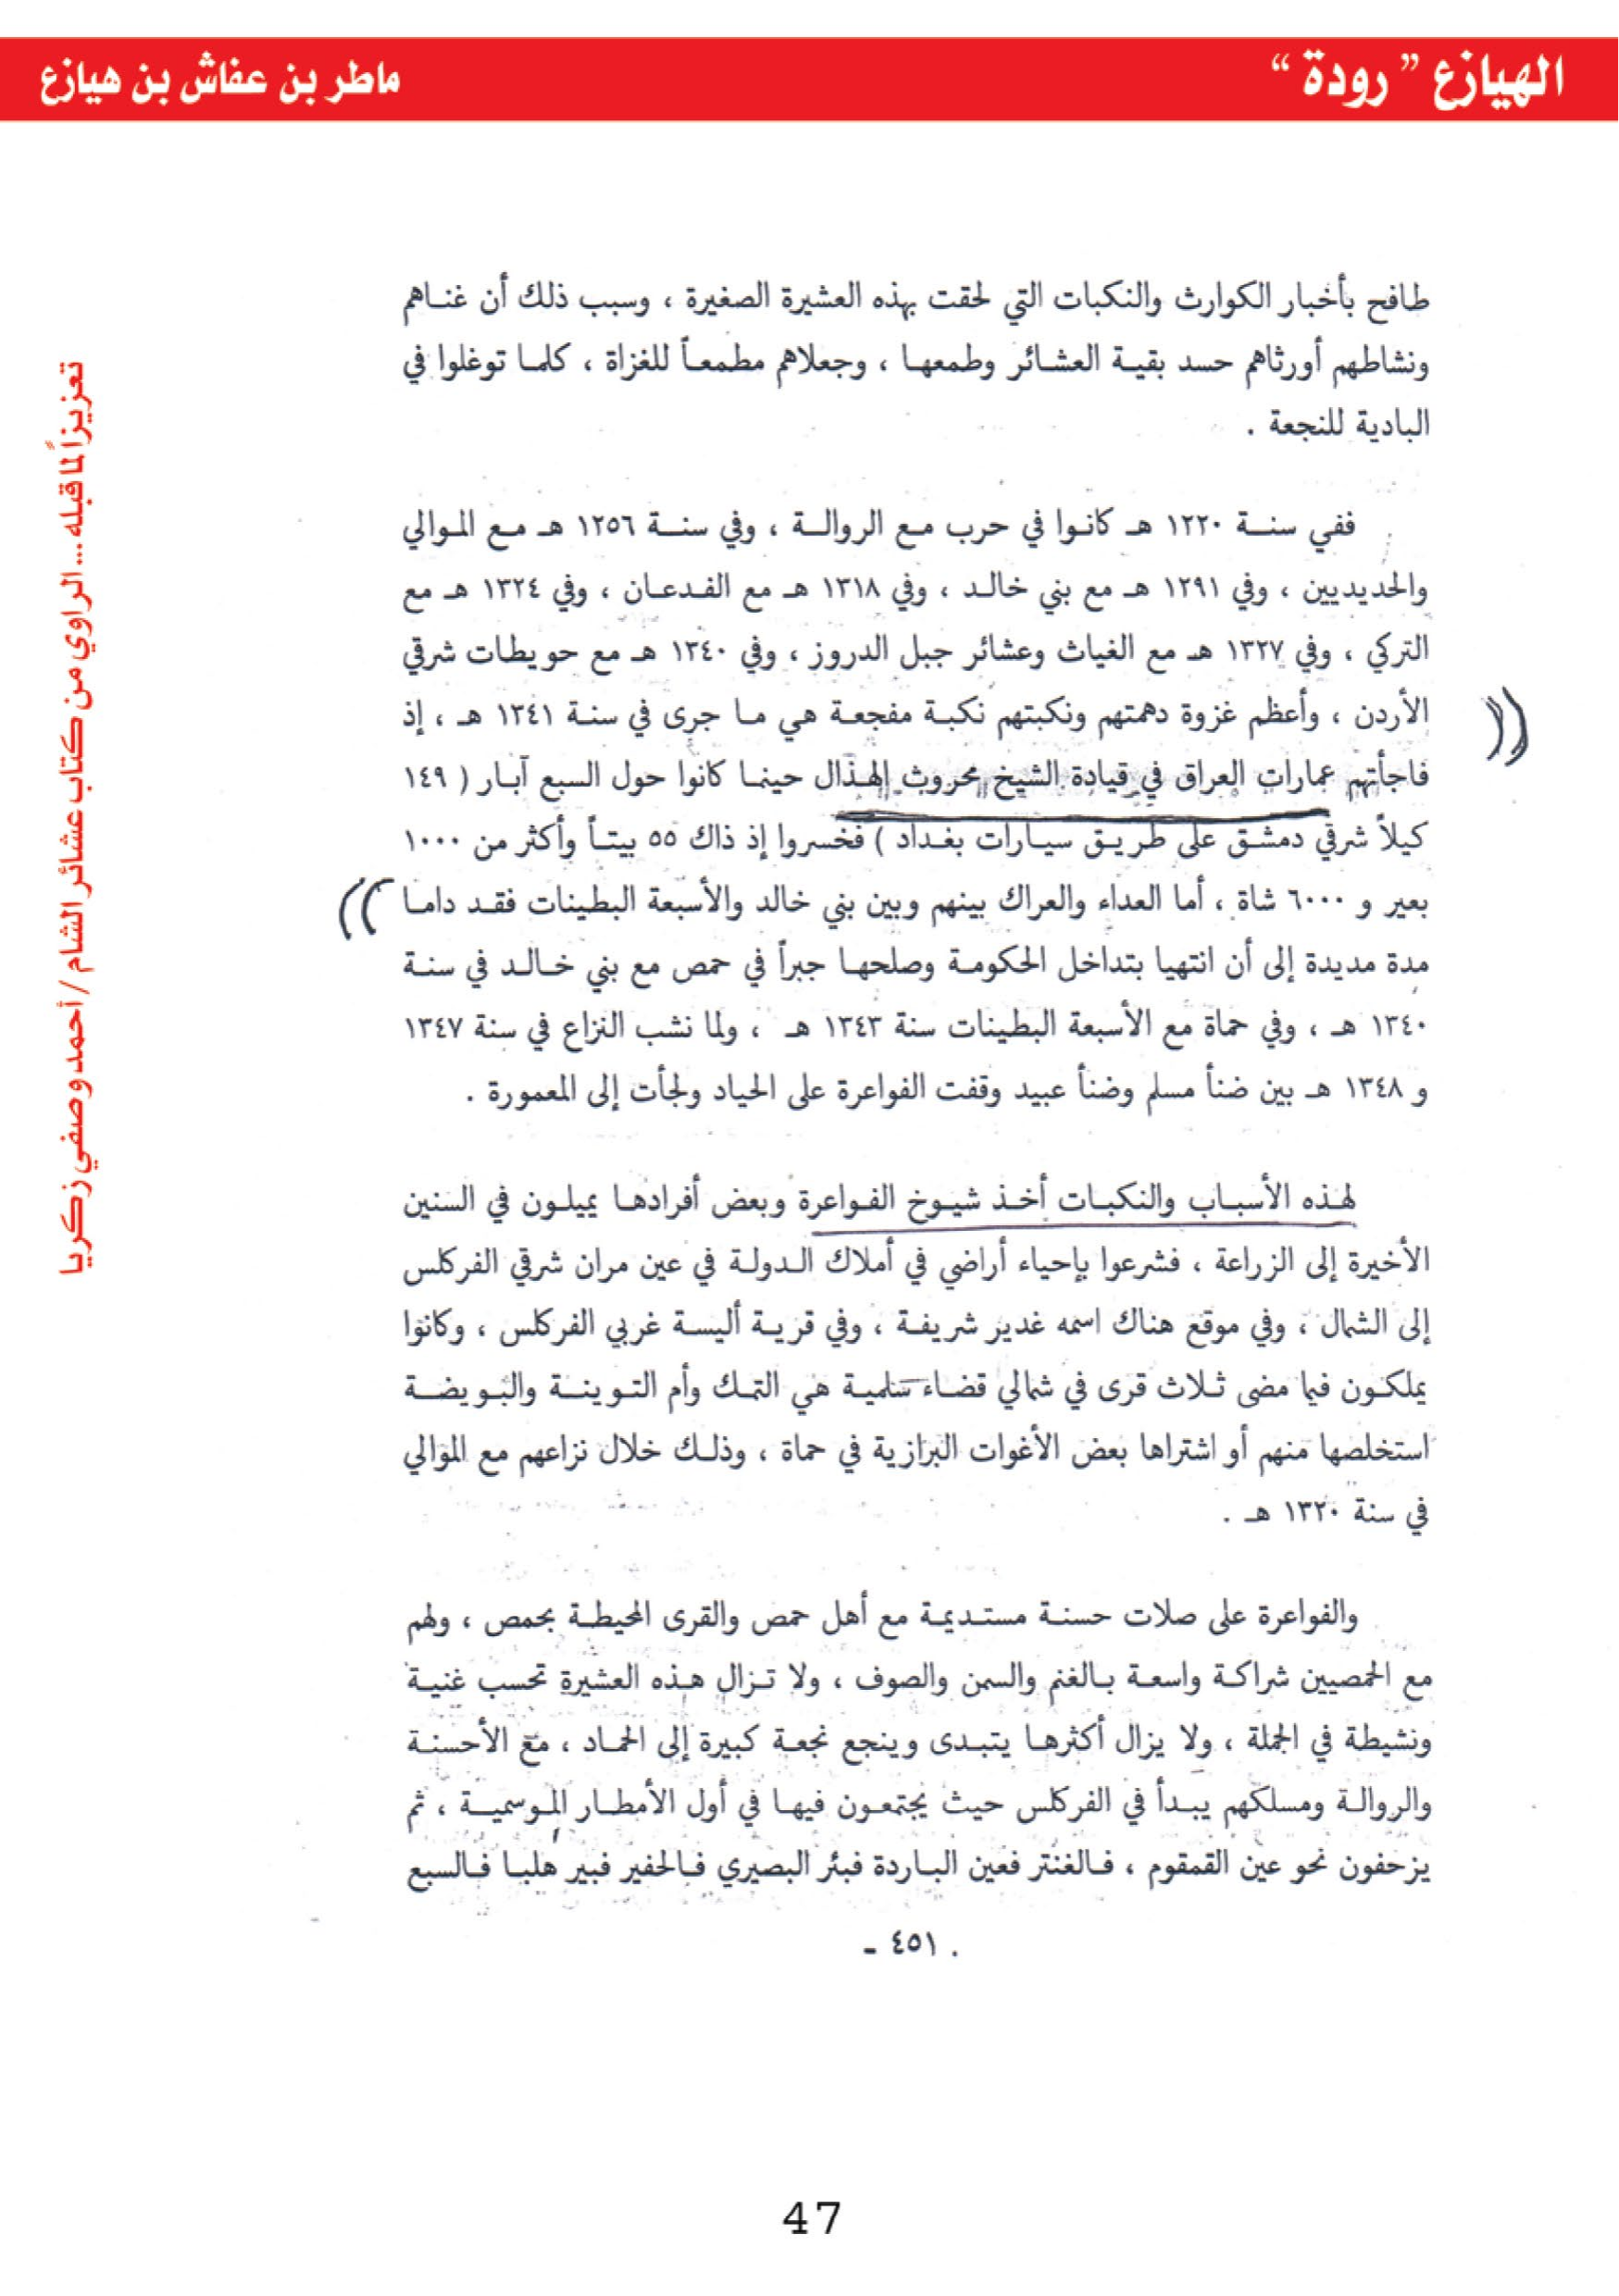 الهيازع " رودة "
ماطر بن عفاش بن هيازع
تعزيزاً لما قبله ... الراوي من كتاب عشائر الشام / أحمد وصفي زكريا
طافح بأخبار الكوارث والنكبات التي لحقت بهذه العشيرة الصغيرة ، وسبب ذلك أن غناهم
ونشاطهم أورثاهم حسد بقية العشائر وطمعها ، وجعلاهم مطمعاً للغزاة ، كلما توغلوا في
البادية للنجعة .
ففي سنة ١٢٢٠ هـ كانوا في حرب مع الروالة ، وفي سنة ١٢٥٦ هـ مع الموالي
والحديديين ، وفي ١٢٩١ هـ مع بني خالد ، وفي ١٣١٨ هـ مع الفدعان ، وفي ١٣٢٤ هـ مع
التركي ، وفي ١٣٢٧ هـ مع الغياث وعشائر جبل الدروز ، وفي ١٣٤٠ هـ مع حويطات شرقي
الأردن ، وأعظم غزوة دهمتهم ونكبتهم نكبة مفجعة هي ما جرى في سنة ١٣٤١ هـ ، إذ
فاجأتهم عمارات العراق في قيادة الشيخ محروث الهذال حينما كانوا حول السبع آبار ( ١٤٩
كيلاً شرقي دمشق على طريق سيارات بغداد ) فخسروا إذ ذاك ٥٥ بيتاً وأكثر من ١٠٠٠
بعير و ٦٠٠٠ شاة ، أما العداء والعراك بينهم وبين بني خالد والأسبعة البطينات فقد داما
مدة مديدة إلى أن انتهيا بتداخل الحكومة وصلحها جبراً في حمص مع بني خالد في سنة
١٣٤٠ هـ ، وفي حماة مع الأسبعة البطينات سنة ١٣٤٣ هـ ، ولما نشب النزاع في سنة ١٣٤٧
و ١٣٤٨ هـ بين ضنأ مسلم وضنأ عبيد وقفت الفواعرة على الحياد ولجأت إلى المعمورة .
لهذه الأسباب والنكبات أخذ شيوخ الفواعرة وبعض أفرادها يميلون في السنين
الأخيرة إلى الزراعة ، فشرعوا بإحياء أراضي في أملاك الدولة في عين مران شرقي الفركلس
إلى الشمال ، وفي موقع هناك اسمه غدير شريفة ، وفي قرية أليسة غربي الفركلس ، وكانوا
يملكون فيما مضى ثلاث قرى في شمالي قضاء سلمية هي التمك وأم التوينة والبويضة
استخلصها منهم أو اشتراها بعض الأغوات البرازية في حماة ، وذلك خلال نزاعهم مع الموالي
في سنة ١٣٢٠ هـ .
والفواعرة على صلات حسنة مستديمة مع أهل حمص والقرى المحيطة بحمص ، ولهم
مع الحمصيين شراكة واسعة بالغنم والسمن والصوف ، ولا تزال هذه العشيرة تحسب غنية
ونشيطة في الجملة ، ولا يزال أكثرها يتبدى وينجع نجعة كبيرة إلى الحماد ، مع الأحسنة
والروالة ومسلكهم يبدأ في الفركلس حيث يجتمعون فيها في أول الأمطار الموسمية ، ثم
يزحفون نحو عين القمقوم ، فالغنتر فعين الباردة فبئر البصيري فالحفير فبير هلبا فالسبع
. ٤٥١ -
47